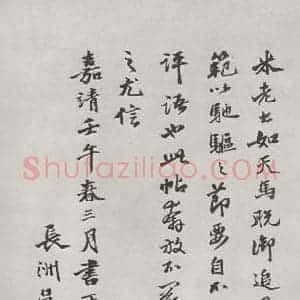 米老書如天馬脫御追
範以馳驅之節要自不
評語也此帖奔放不
之尤信
嘉靖壬午春三月書
長洲
Shufaziliao.com